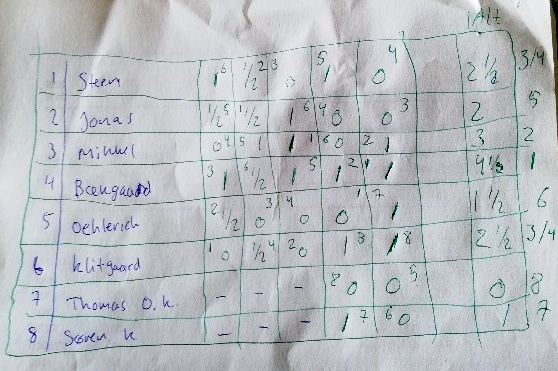 I Alt
1 Steen 1 6 1/2 2 0 3 1 5 0 4 2 1/2 3/4
2 Jonas 1/2 5 1/2 1 6 0 4 0 3 2 5
3 Mikkel 0 4 1 5 1 1 0 6 1 2 3 2
4 Bækgaard 1 3 1/2 6 1 5 1 2 1 1 4 1/2 1
5 Oehlerich 1/2 2 0 0 3 0 4 0 1 1 7 1 1/2 6
6 Klitgaard 0 1 1/2 4 0 2 1 3 1 8 2 1/2 3/4
7 Thomas O. K. - - - 0 8 0 5 0 8
8 Søren K - - - 1 7 0 6 1 7